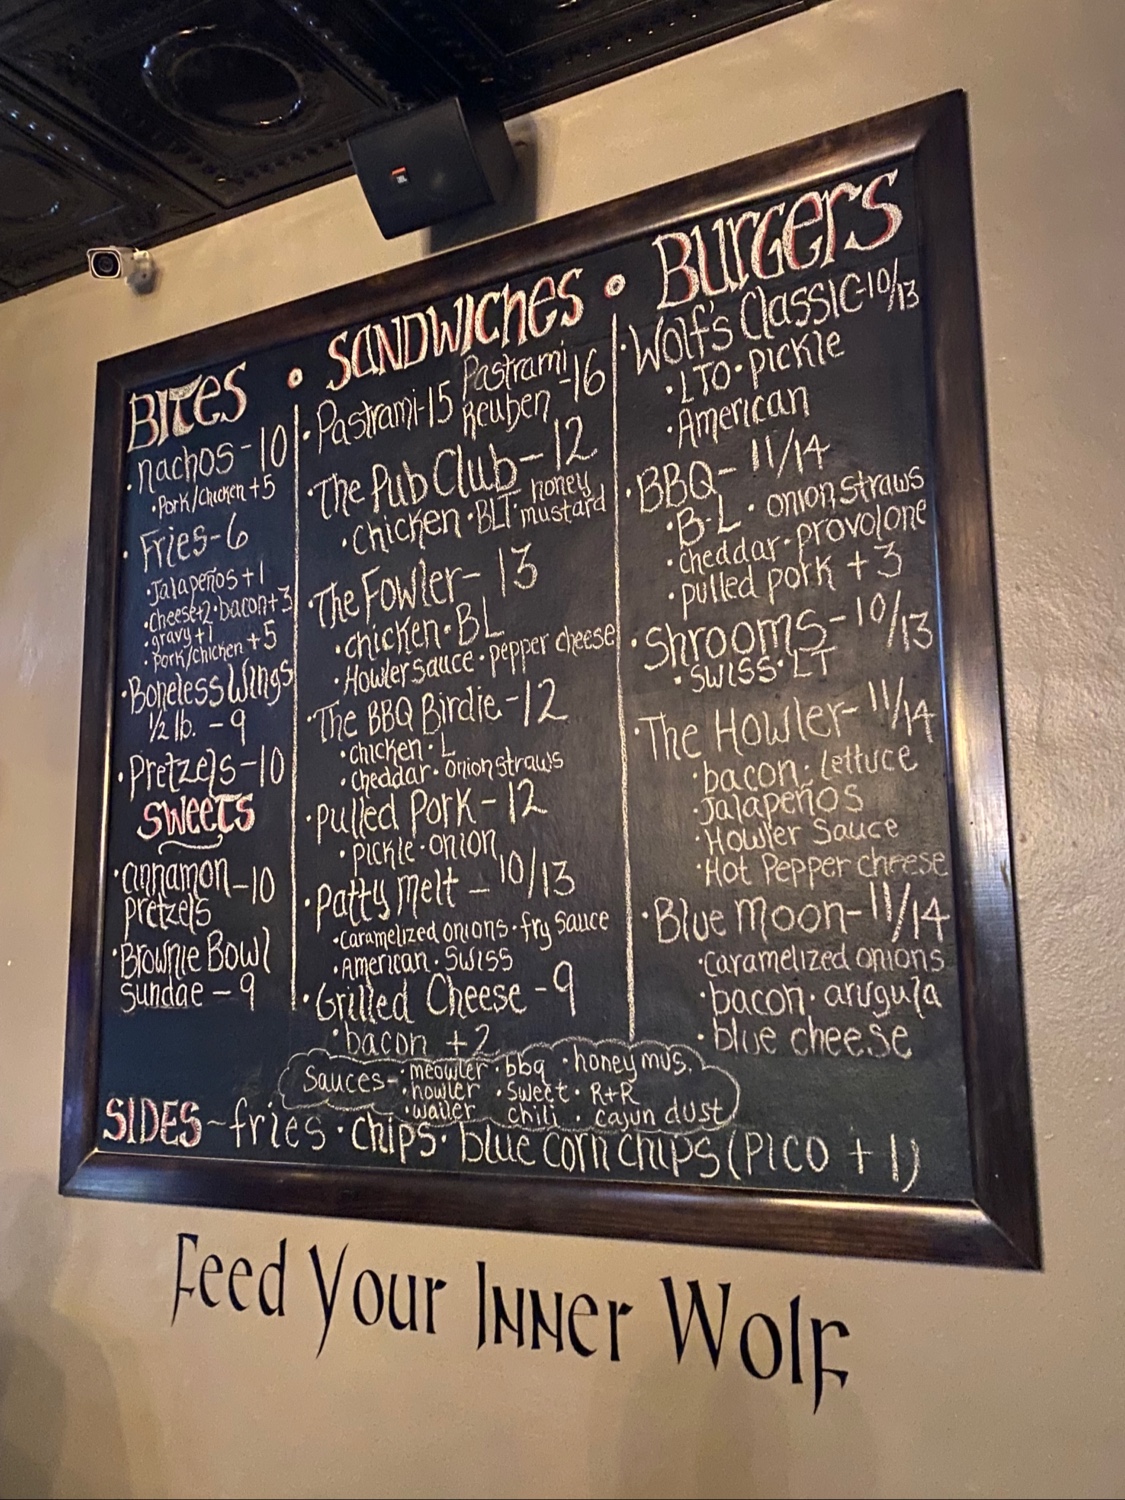 BITES • SANDWICHES • BURGERS
• Nachos - 10
• Pork/Chicken +5
• Fries - 6
• Jalapeños +1
• Cheese+2 • bacon+3
• gravy +1
• Pork/chicken +5
• Boneless Wings
1/2 lb. - 9
• Pretzels - 10
SWEETS
• Cinnamon - 10
Pretzels
• Brownie Bowl
Sundae - 9
• Pastrami - 15 Pastrami Reuben - 16
• The Pub Club - 12
• Chicken • BLT • honey mustard
• The Fowler - 13
• chicken • BL
• Howler sauce • pepper cheese
• The BBQ Birdie - 12
• chicken • L
• cheddar • onion straws
• Pulled Pork - 12
• Pickle • onion
• Patty Melt - 10/13
• caramelized onions • fry sauce
• American • Swiss
• Grilled Cheese - 9
• bacon +2
• Wolf's Classic - 10/13
• LTO • pickle
• American
• BBQ - 11/14
• B-L • onion straws
• cheddar • provolone
• pulled pork +3
• Shrooms - 10/13
• swiss • LT
• The Howler - 11/14
• bacon • lettuce
• Jalapeños
• Howler Sauce
• Hot Pepper cheese
• Blue Moon - 11/14
• caramelized onions
• bacon • arugula
• blue cheese
Sauces - • meowler • bbq • honey mus.
• howler • sweet • R+R
• wailer chili • cajun dust
SIDES ~ fries • chips • blue corn chips (PICO +1)
Feed Your Inner Wolf